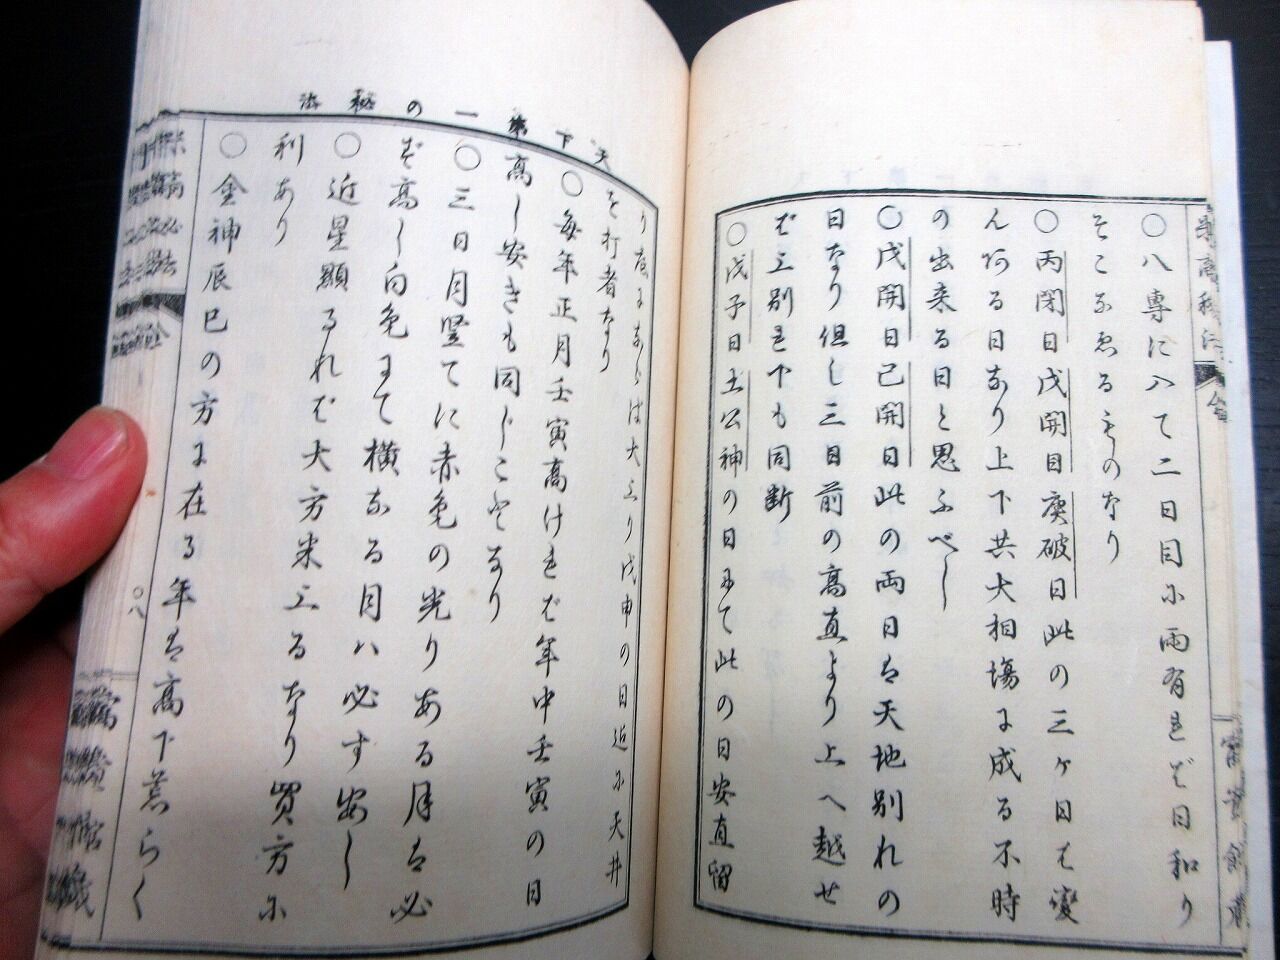 ○八専に入て二日目小雨有れば日和り
そこなゑるものなり
○丙閉日戊開日庚破日此の三ヶ日は変
ん有る日なり上下共大相場に成る不時
の出来る日と思ふべし
○戊開日己開日此の両日は天地別れの
日なり但し三日前の高直より上へ越せ
ば上別れ下も同断
○戊子日土公神の日にて此の日安直留
り底にならば大上り戊申の日近に天井
を打者なり
天下第一の秘法
○毎年正月壬寅高ければ年中壬寅の日
高し安きも同じことなり
○三日月竪てに赤色の光りある月は必
ず高し白色にて横なる月ハ必す安し
○近星顕るれば大方米上るなり買方に
利あり
○金神辰巳の方に在る年は高下荒らく
〇八